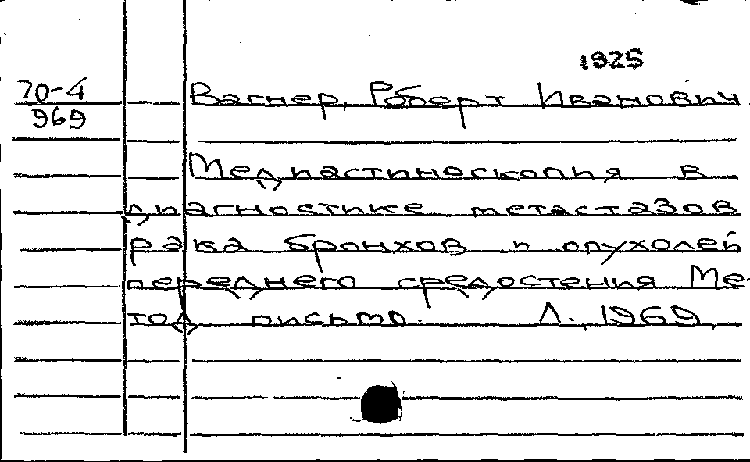 1925
70-4
969
Вагнер, Роберт Иванович.
Медиастиноскопия в
диагностике метастазов
рака бронхов и опухолей
переднего средостения Ме-
тод письмо. Л., 1969,